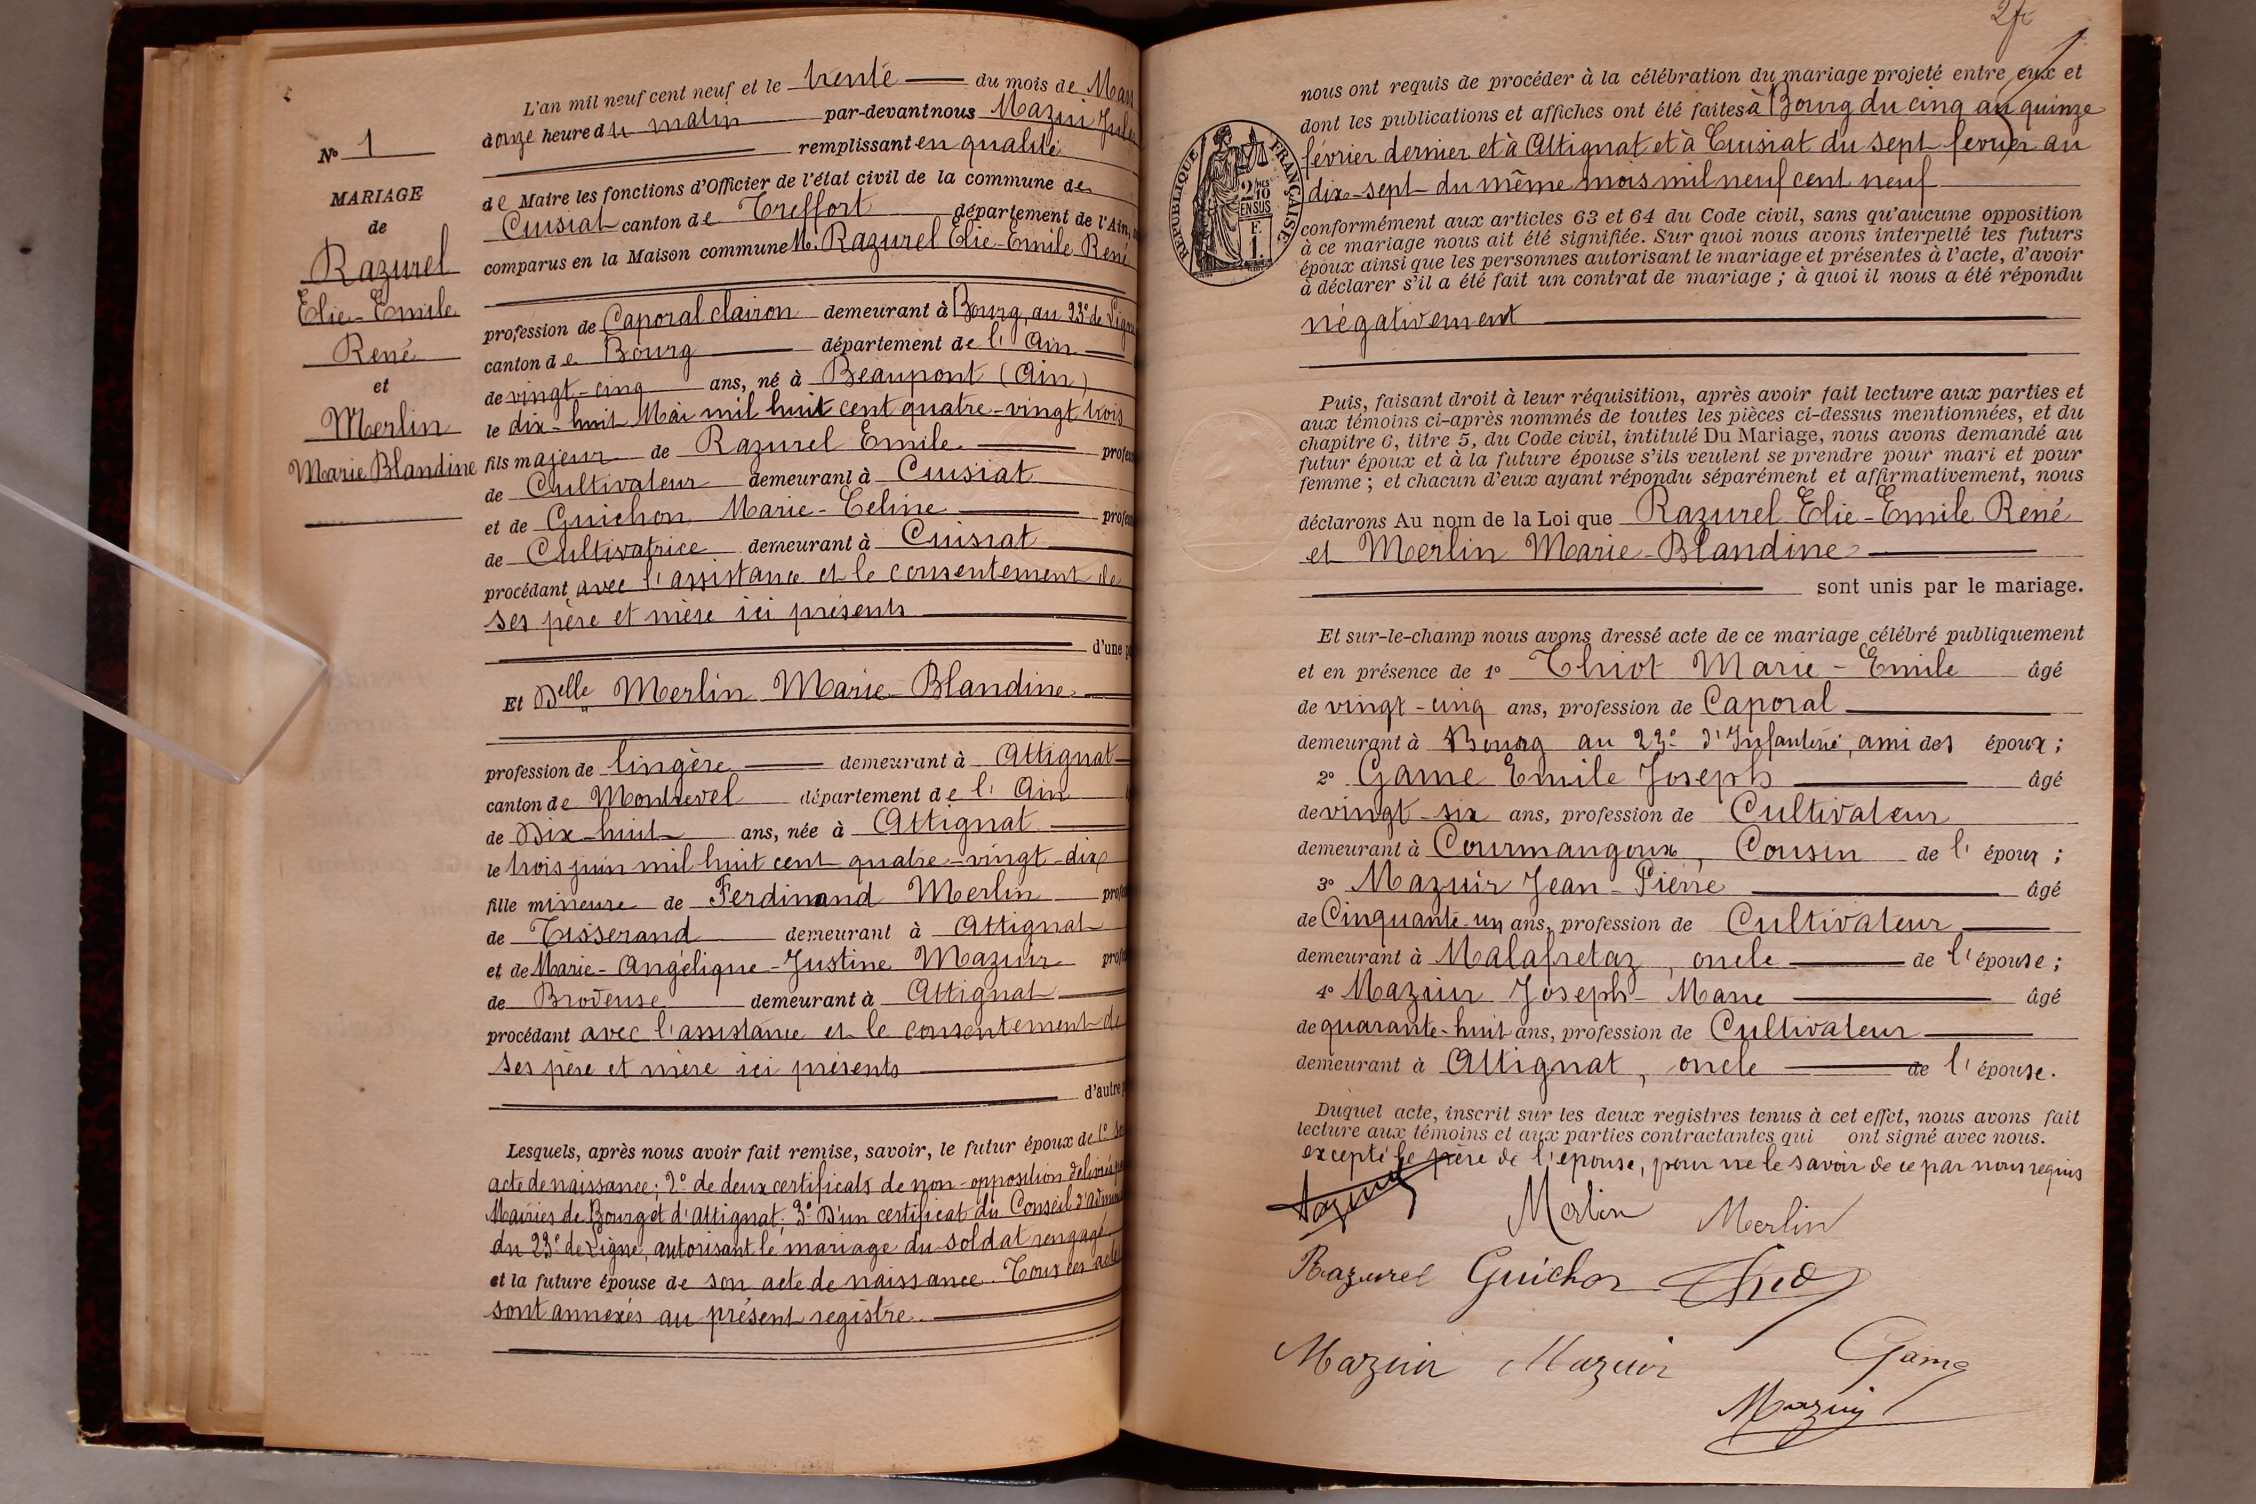 L'an mil neuf cent neuf et le trente du mois de Mars
à onze heure du matin par-devant nous Mazui Jules
N° 1
remplissant en qualité
MARIAGE
de
de Maire les fonctions d'Officier de l'état civil de la commune de
Cuisiat canton de Treffort département de l'Ain,
Razurel
comparus en la Maison commune M. Razurel Elie-Emile René
Elie-Emile
profession de Caporal clairon demeurant à Bourg, au 23e de Ligne
René
canton de Bourg département de l'Ain
et
de vingt-cinq ans, né à Beaupont (Ain)
Merlin
le dix-huit Mai mil huit cent quatre-vingt trois
Marie Blandine
fils majeur de Razurel Emile
de Cultivateur demeurant à Cuisiat
et de Guichon Marie-Celine
de Cultivatrice demeurant à Cuisiat
procédant avec l'assistance et le consentement de
ses père et mère ici présents
d'une
Et Delle Merlin Marie-Blandine
profession de lingère demeurant à Attignat
canton de Montrevel département de l'Ain
de Dix-huit ans, née à Attignat
le trois juin mil huit cent quatre-vingt-dix
fille mineure de Ferdinand Merlin
de Tisserand demeurant à Attignat
et de Marie-Angélique-Justine Mazuir
de Brodeuse demeurant à Attignat
procédant avec l'assistance et le consentement de
ses père et mère ici présents
d'autre
Lesquels, après nous avoir fait remise, savoir, le futur époux de 1° son
acte de naissance; 2° de deux certificats de non-opposition délivrés
Mairies de Bourg et d'Attignat; 3° D'un certificat du Conseil d'
du 23e de Ligne, autorisant le mariage du soldat rengagé
et la future épouse de son acte de naissance. Tous ces actes
sont annexés au présent registre.
nous ont requis de procéder à la célébration du mariage projeté entre eux et
dont les publications et affiches ont été faites à Bourg du cinq au quinze
février dernier et à Attignat et à Cuisiat du sept février au
dix-sept du même mois mil neuf cent neuf
RÉPUBLIQUE FRANÇAISE
2/10 EN SUS
conformément aux articles 63 et 64 du Code civil, sans qu'aucune opposition
à ce mariage nous ait été signifiée. Sur quoi nous avons interpellé les futurs
époux ainsi que les personnes autorisant le mariage et présentes à l'acte, d'avoir
à déclarer s'il a été fait un contrat de mariage ; à quoi il nous a été répondu
négativement
Puis, faisant droit à leur réquisition, après avoir fait lecture aux parties et
aux témoins ci-après nommés de toutes les pièces ci-dessus mentionnées, et du
chapitre 6, titre 5, du Code civil, intitulé Du Mariage, nous avons demandé au
futur époux et à la future épouse s'ils veulent se prendre pour mari et pour
femme ; et chacun d'eux ayant répondu séparément et affirmativement, nous
déclarons Au nom de la Loi que Razurel Elie-Emile René
et Merlin Marie-Blandine
sont unis par le mariage.
Et sur-le-champ nous avons dressé acte de ce mariage célébré publiquement
et en présence de 1° Thiot Marie-Emile âgé
de vingt-cinq ans, profession de Caporal
demeurant à Bourg au 23e d'Infanterie, ami des époux ;
2° Game Emile Joseph âgé
de vingt-six ans, profession de Cultivateur
demeurant à Courmangoux, Cousin de l'époux ;
3° Mazuir Jean-Pierre âgé
de Cinquante-un ans, profession de Cultivateur
demeurant à Malafretaz, oncle de l'épouse ;
4° Mazuir Joseph-Marie âgé
de quarante-huit ans, profession de Cultivateur
demeurant à Attignat, oncle de l'épouse.
Duquel acte, inscrit sur les deux registres tenus à cet effet, nous avons fait
lecture aux témoins et aux parties contractantes qui ont signé avec nous.
excepté le père de l'épouse, pour ne le savoir de ce par nous requis
Merlin Merlin
Razurel Guichon
Mazuir Mazuir Game
Mazuy